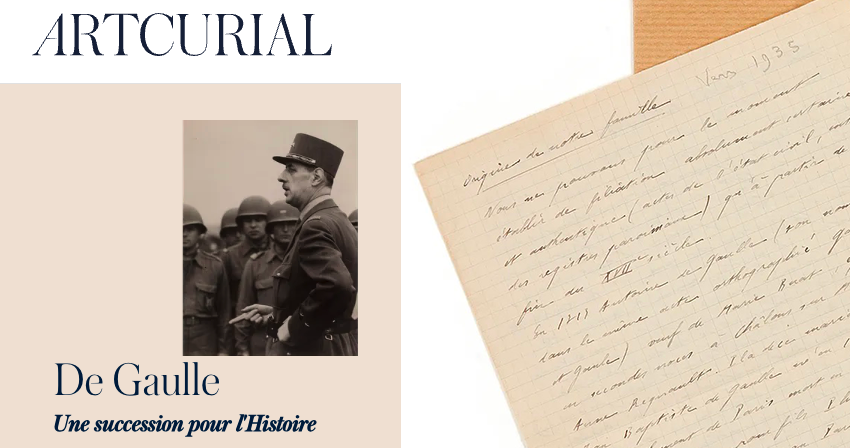 ARTCURIAL
De Gaulle
Une succession pour l'Histoire
Vers 1935
Origine de notre famille
Nous ne pouvons pour le moment
établir de filiation absolument certaine
et authentique (actes de l'état civil,
des registres paroissiaux) qu'à partir de
fin du XVIIe siècle.
En 1713 Antoine de Gaulle (son nom
dans le même acte orthographié
et Gaule) veuf de Marie
en secondes noces à Châlons sur
Anne Regnault. Il a
Baptiste de Gaulle
de Paris mort